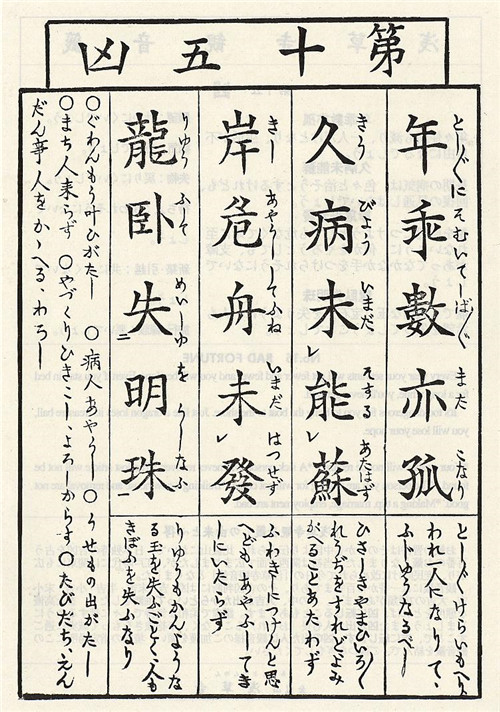 第十五凶
年乖數亦孤
とし〲けらいもへり、
われ一人になりて、
ふじゆうなるべし
きう びよう いまだ
久病未レ能レ蘇
ひさしきやまひいろ〳〵
れうぢをすれどよみ
がへることあたわず
きし あやうしてふね いまだ はつせず
岸危舟未レ發
ふねきしにつけんと思
へども、あやふしてき
しにいたらず
りゆう ふして めいしゆを うしなふ
龍卧失二明珠一
りゆうもかんような
る玉を失ふごとく、人も
きぼを失ふなり
〇ぐわんもう叶ひがたし 〇病人あやうし 〇うせもの出がたし
〇まち人来らず 〇やづくりひきこしよろしからず 〇たびだち、えん
だん事人をかゝへる、わろし